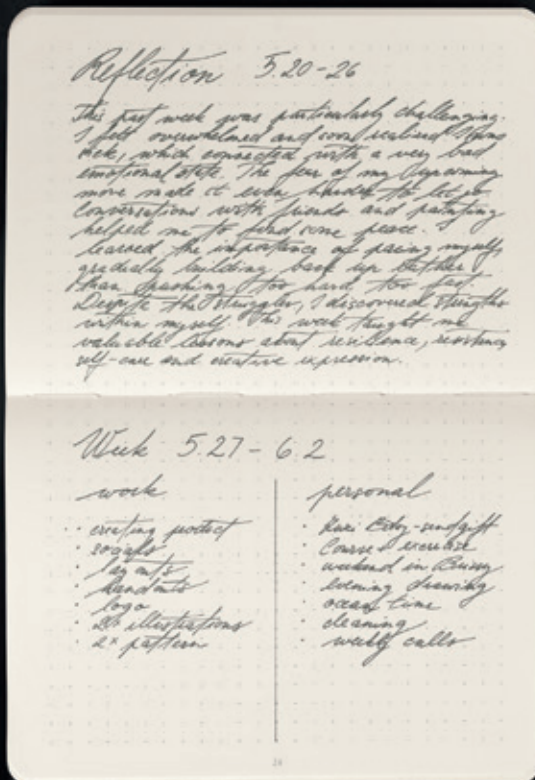 Reflection 5.20-26
This past week was particularly challenging.
I felt overwhelmed and soon realized I was
sick, which connected with a very bad
emotional state. The fear of my upcoming
move made it even harder to let go
Conversations with friends and painting
helped me to find some peace. I
learned the importance of pacing myself,
gradually building back up rather
than pushing too hard too fast.
Despite the struggles, I discovered strengths
within myself. This week taught me
valuable lessons about resilience,
self-care and creative expression.
Week 5.27-6.2
work
• creating
• socials
• layouts
• handouts
• logo
• illustrations
• 2x pattern
personal
• send gift
• Course & exercise
• weekend in
• evening drawing
• ocean time
• cleaning
• weekly calls
24